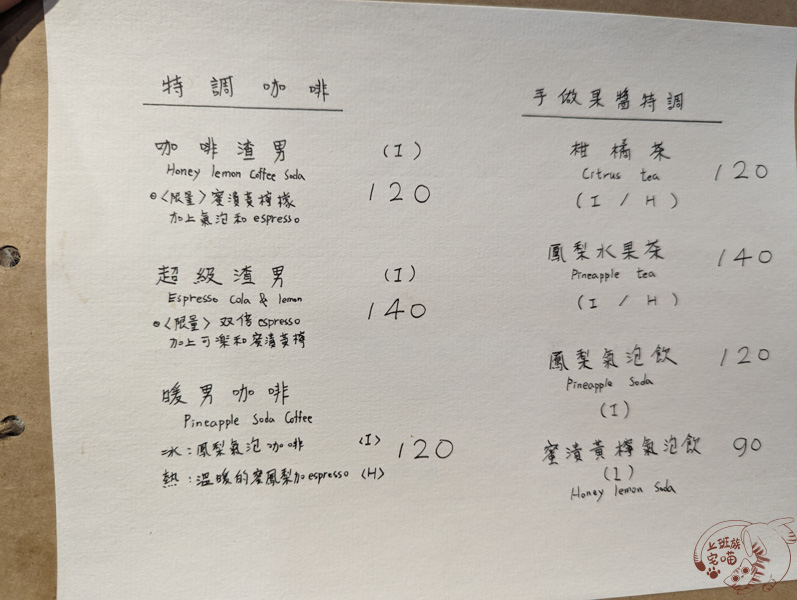 特調咖啡
咖啡渣男 (I)
Honey lemon Coffee Soda
〈限量〉蜜漬黃檸檬 120
加上氣泡和 espresso
超級渣男 (I)
Espresso Cola & lemon
〈限量〉双倍 espresso 140
加上可樂和蜜漬黃檸
暖男咖啡
Pineapple Soda Coffee
冰:鳳梨氣泡咖啡 〈I〉 120
熱:溫暖的蜜鳳梨加espresso 〈H〉
手做果醬特調
柑橘茶
Citrus tea 120
(I / H)
鳳梨水果茶 140
Pineapple tea
(I / H)
鳳梨氣泡飲 120
Pineapple Soda
(I)
蜜漬黃檸氣泡飲 90
(I)
Honey lemon Soda
上班族
宅喵